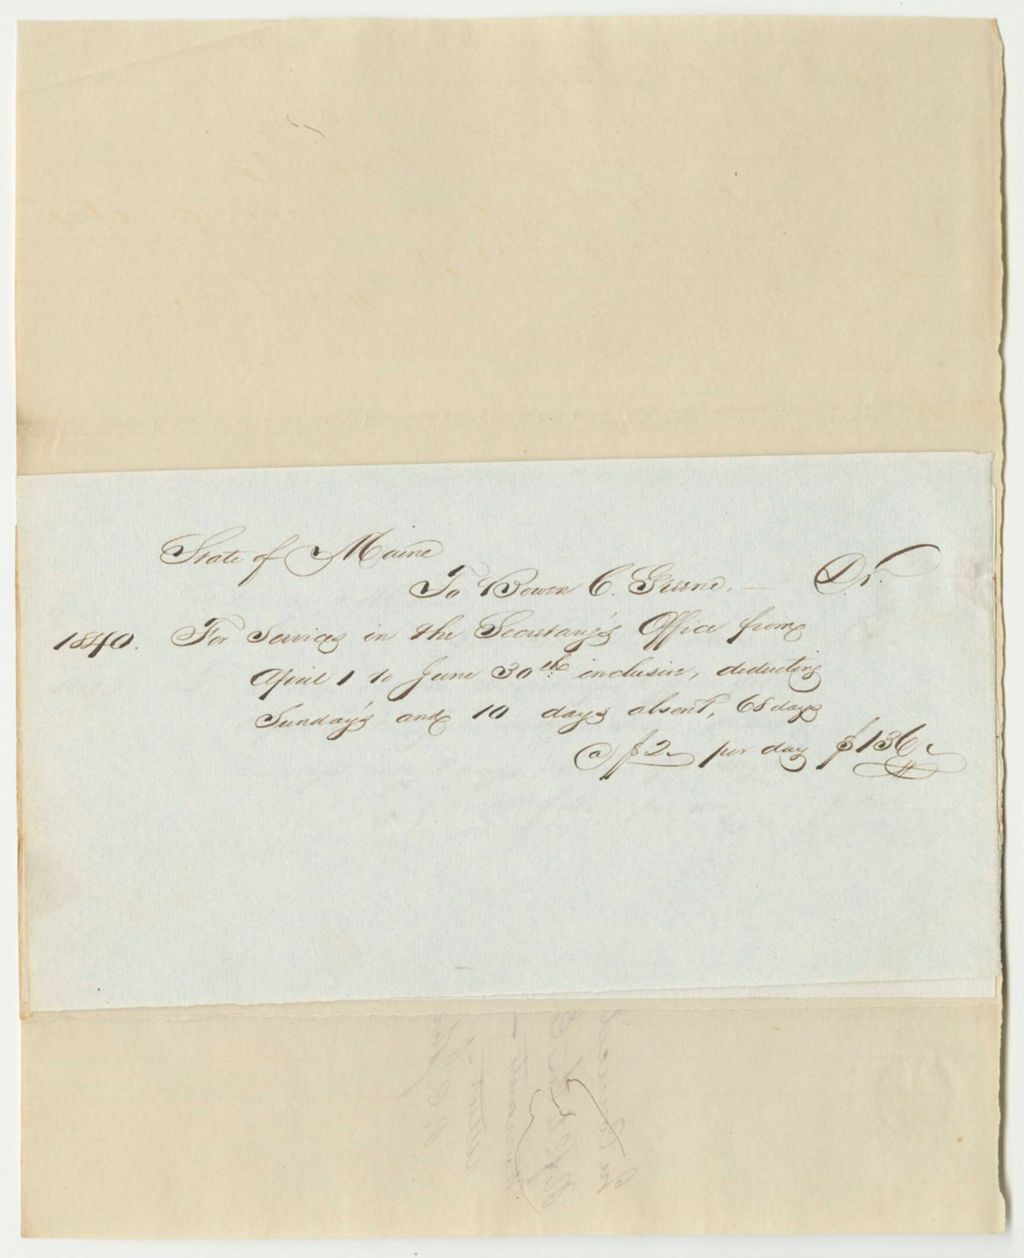 State of Maine
To Bowen C. Greene. — Dr.
1840. For Services in the Secretary's Office from
April 1 to June 30th inclusive, deducting
Sunday's and 10 days absent, 68 days
$2 per day $136.